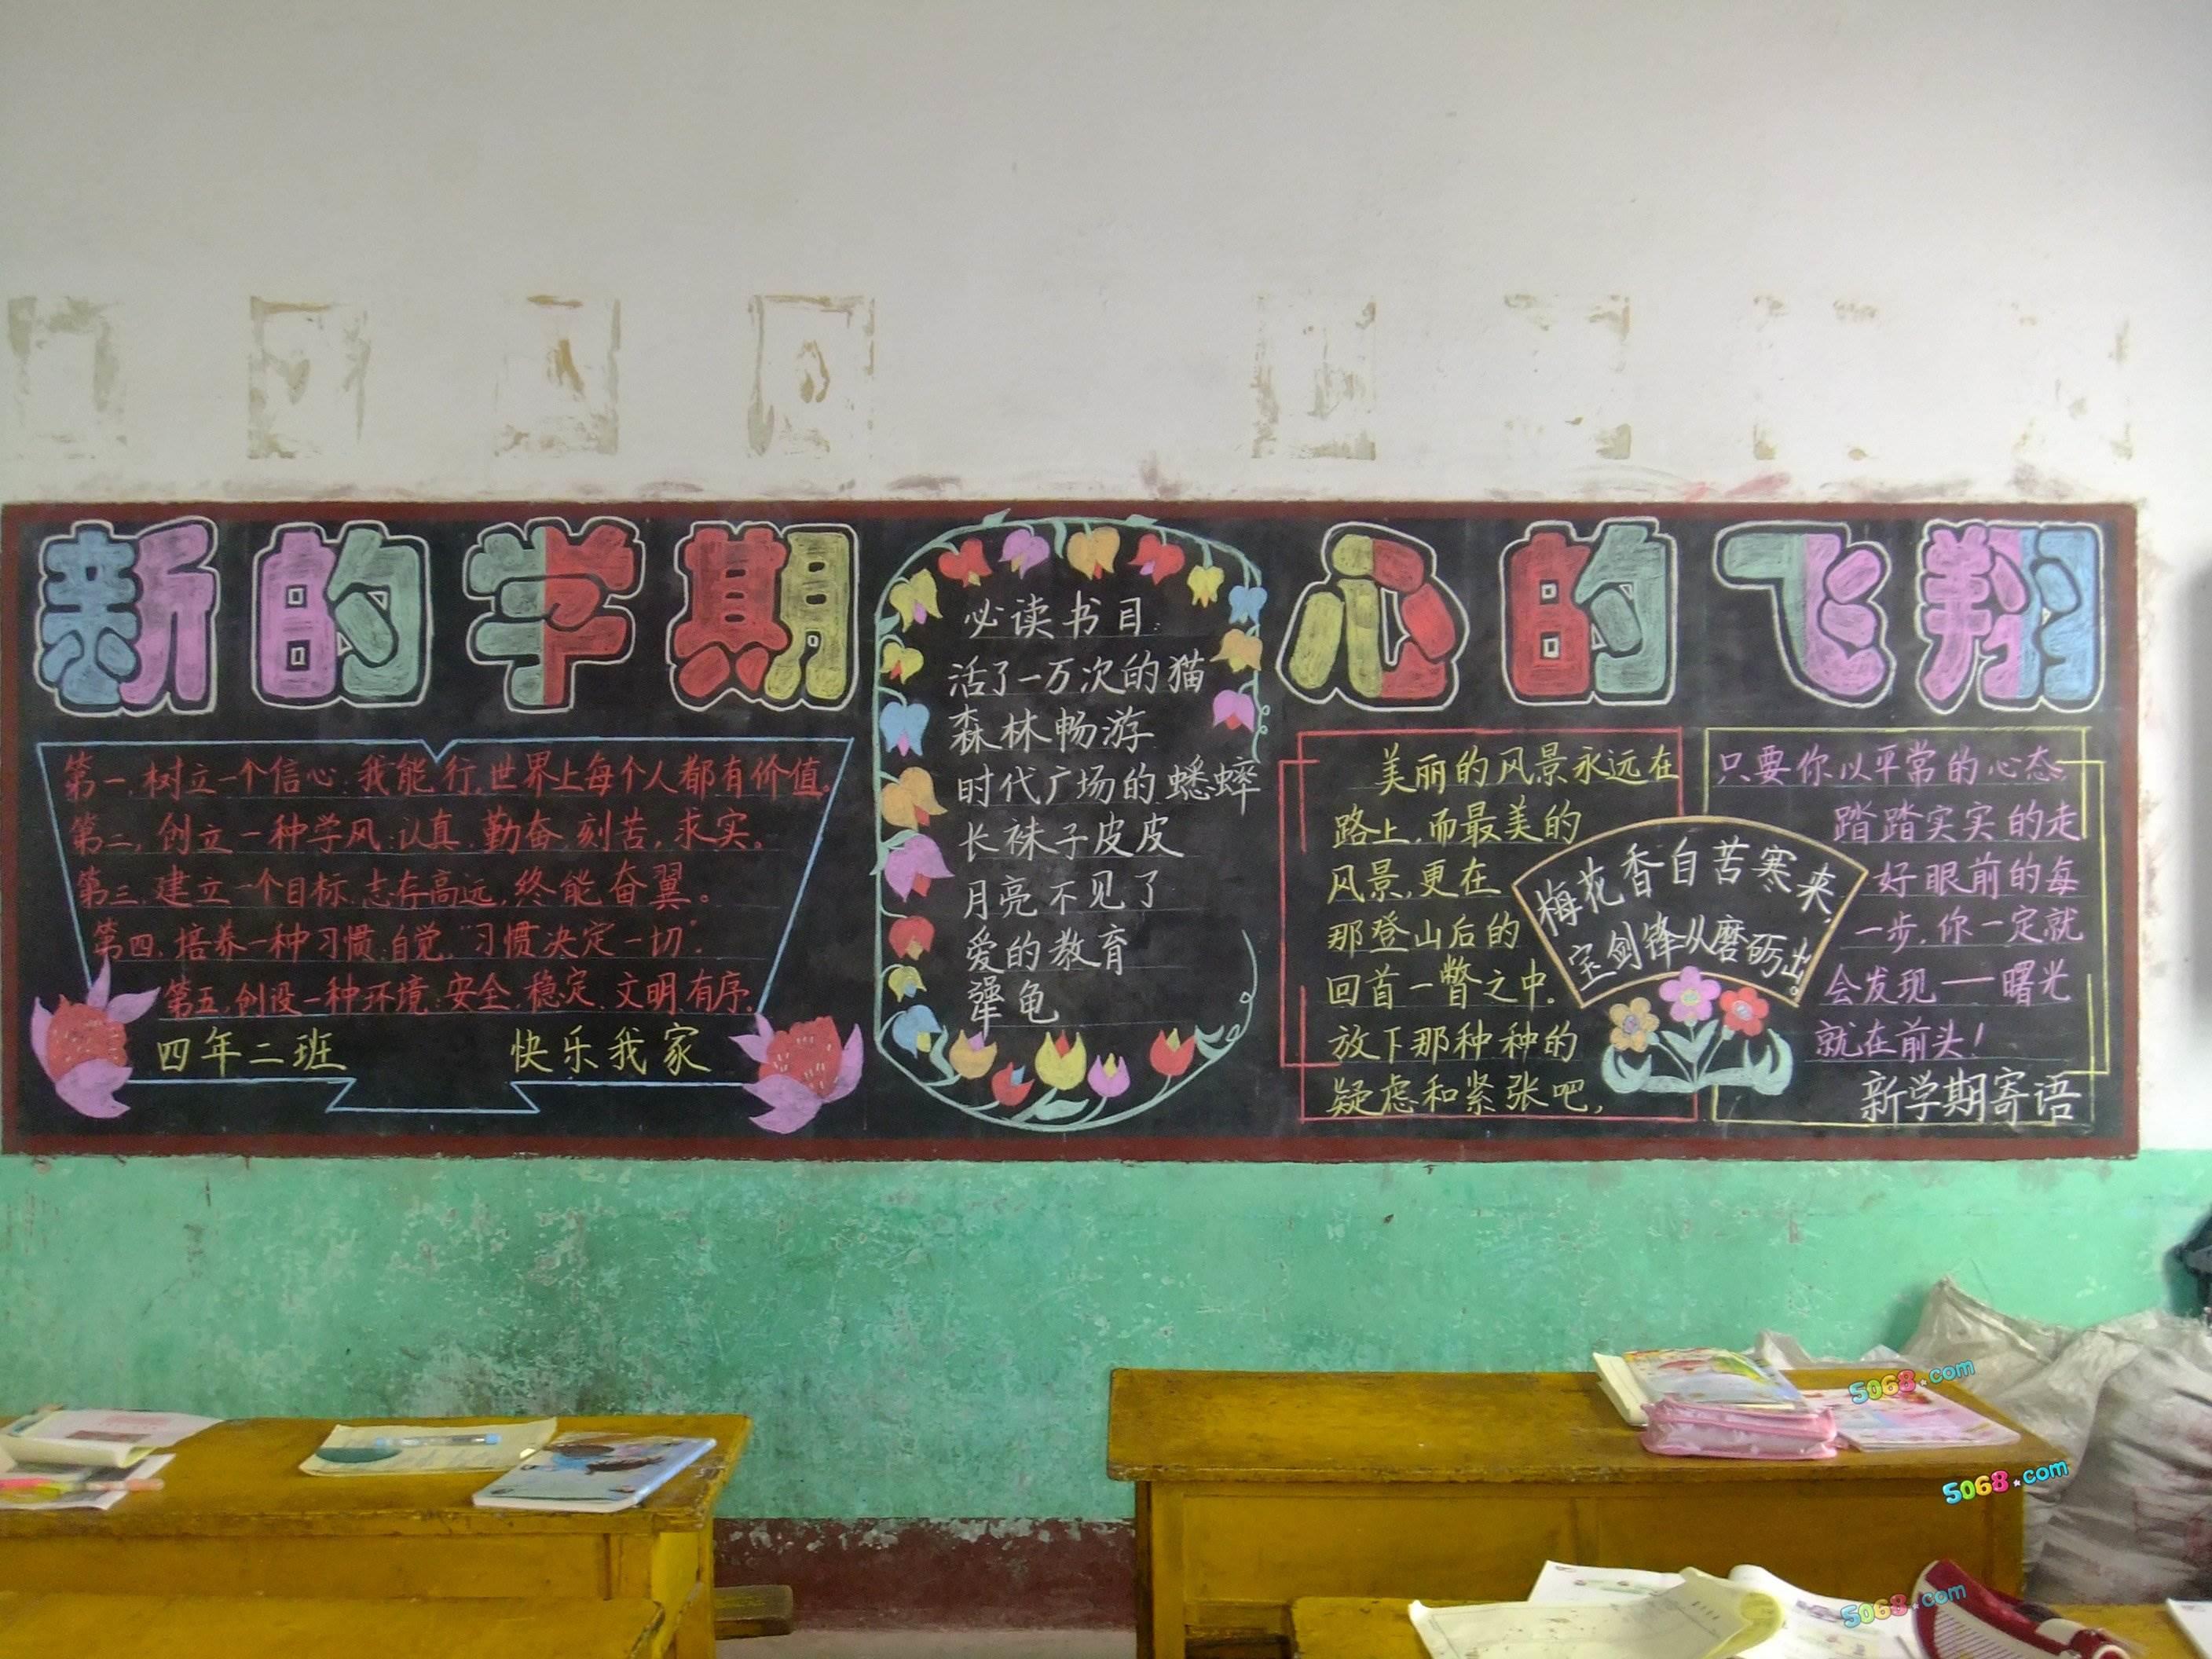 新的学期
心的飞翔
第一,树立一个信心:我能行,世界上每个人都有价值。
第二,创立一种学风:认真,勤奋,刻苦,求实。
第三,建立一个目标,志存高远,终能奋翼。
第四,培养一种习惯:自觉,"习惯决定一切"。
第五,创设一种环境:安全,稳定,文明,有序。
四年二班 快乐我家
必读书目:
活了一万次的猫
森林畅游
时代广场的蟋蟀
长袜子皮皮
月亮不见了
爱的教育
犟龟
美丽的风景永远在
路上,而最美的
风景,更在
那登山后的
回首一瞥之中。
放下那种种的
疑虑和紧张吧,
梅花香自苦寒来,
宝剑锋从磨砺出。
只要你以平常的心态,
踏踏实实的走
好眼前的每
一步,你一定就
会发现——曙光
就在前头!
新学期寄语
5068.com
5068.com
5068.com